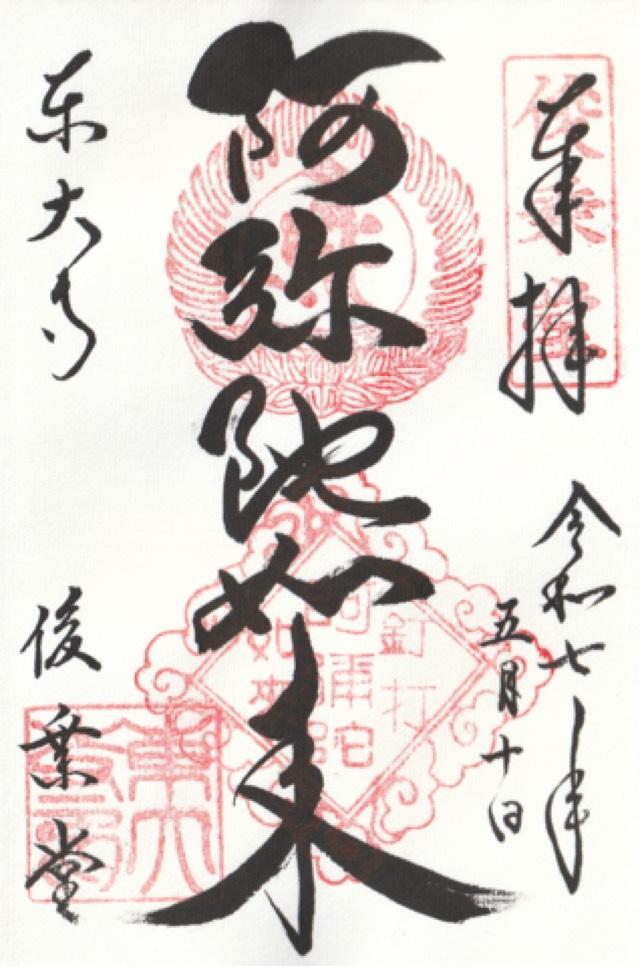 奉拝
俊乗堂
令和七年
五月十日
阿弥陀如来
釘打
阿彌陀
如来
東大寺
俊乗堂